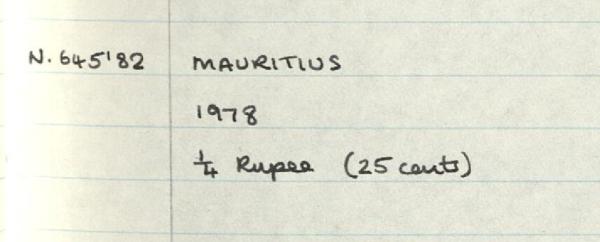 N.645'82 MAURITIUS
1978
¼ Rupee (25 cents)